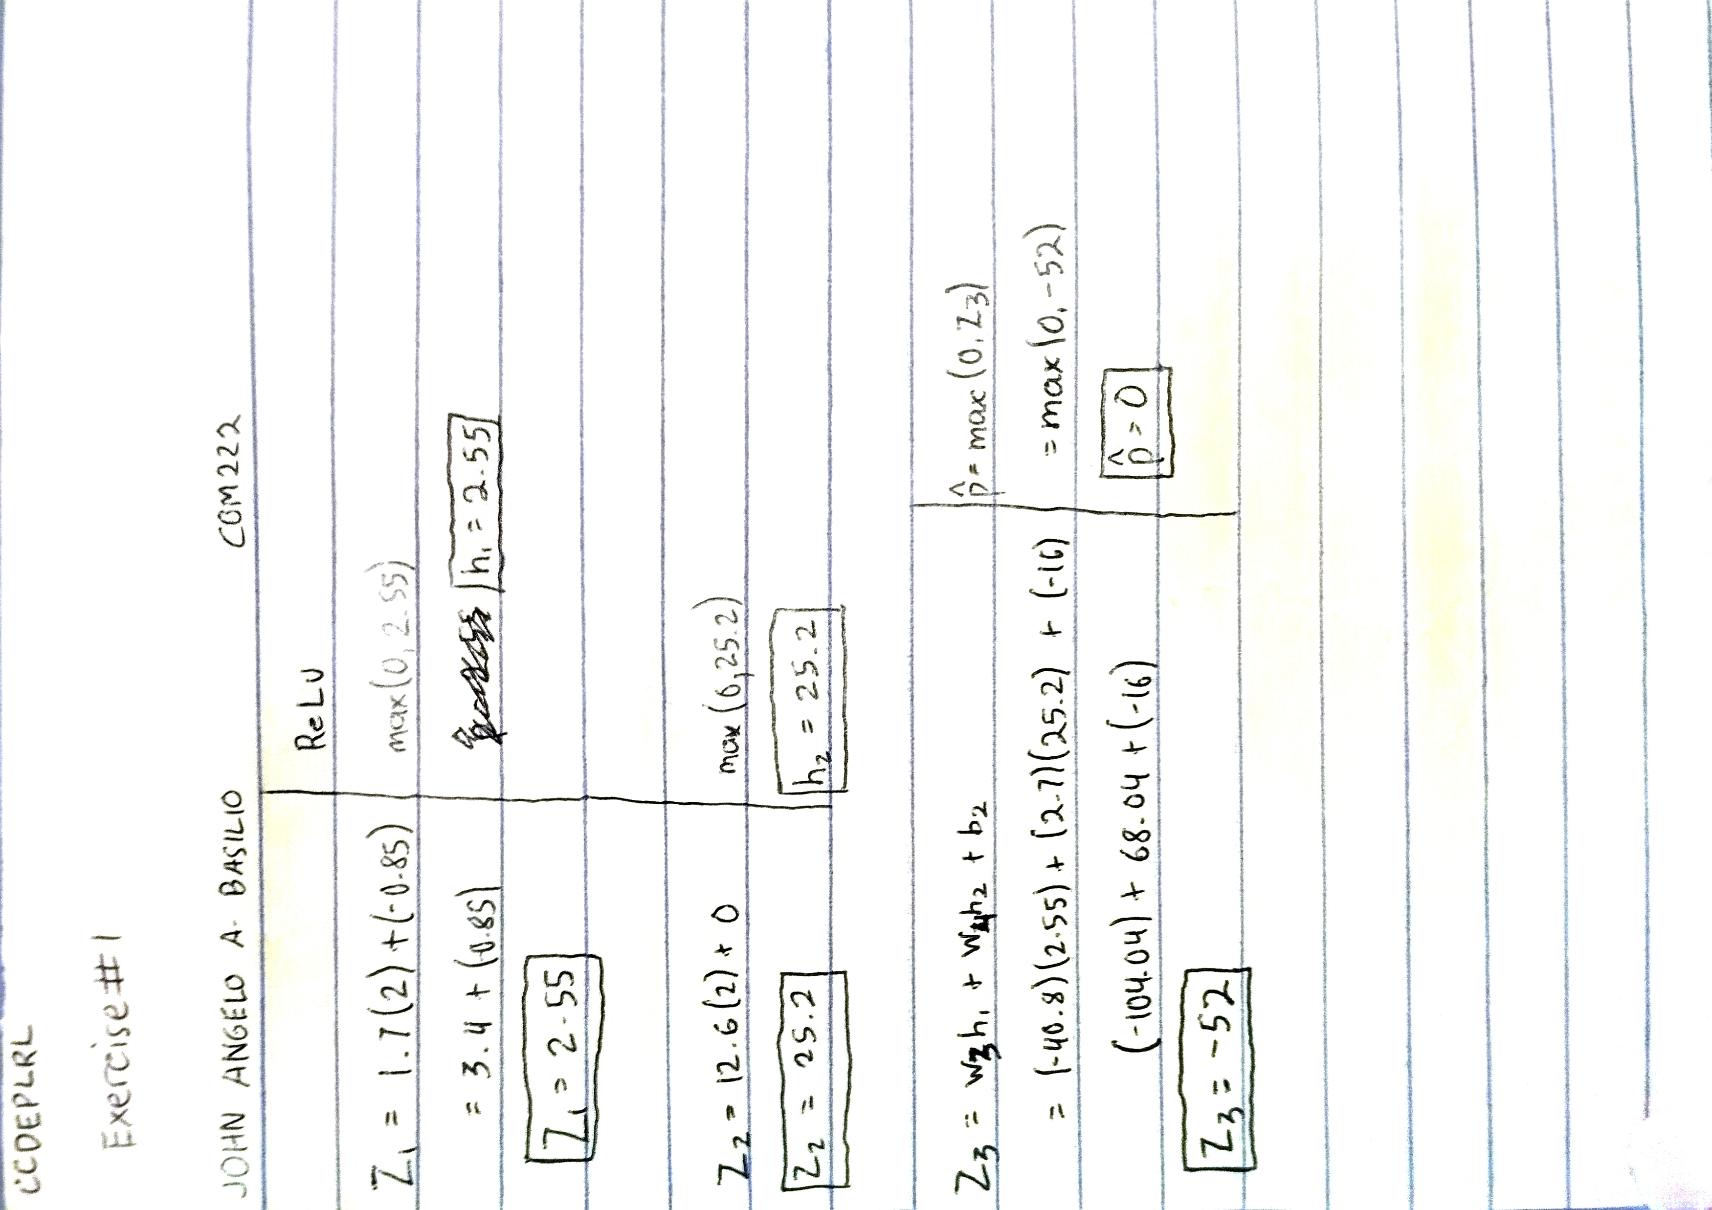 CCDEPLRL
Exercise #1
JOHN ANGELO A. BASILIO COM222
ReLU
Z₁ = 1.7(2) + (-0.85)
max(0, 2.55)
= 3.4 + (-0.85)
h₁ = 2.55
Z₁ = 2.55
Z₂ = 12.6(2) + 0
max(0, 25.2)
Z₂ = 25.2
h₂ = 25.2
Z₃ = w₃h₁ + w₄h₂ + b₂
= (-40.8)(2.55) + (2.7)(25.2) + (-16)
(-104.04) + 68.04 + (-16)
Z₃ = -52
p̂ = max(0, Z₃)
= max(0, -52)
p̂ = 0